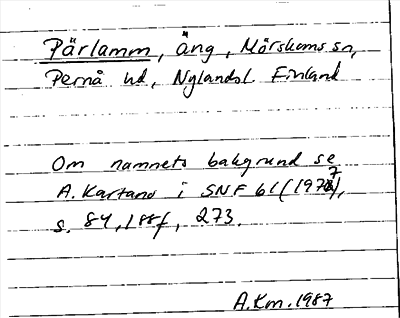 Pärlamm, äng, Mörskoms sn,
Pernå hd, Nylandsl. Finland
Om namnets bakgrund se
A. Kartano i SNF 61 (1977),
s. 84, 188f, 273.
A.Km. 1987